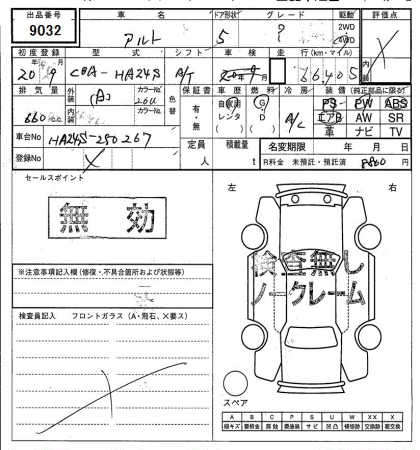 出品番号 車名 ドア形状 グレード 駆動 評価点
9032 アルト 5 2WD 4WD
初度登録 型式 シフト 車検 走行(km・マイル) 内装
20 9 CBA-HA24S A/T 20 9 66,405
排気量 外装 カラーNo. 色替 保証書 車歴 燃料 冷房 装備(純正部品に限る)
660 c.c. 内装 (A) カラーNo. 26U 有・無 自家用 レンタ G D A/C PS PW ABS
エアB AW SR
革 ナビ TV
車台No HA24S-250267
定員 人 積載量 t 名変期限 年 月 日
登録No R料金 未預託・預託済 8800円
セールスポイント 左 右
無効
検査無し
ノークレーム
※注意事項記入欄(修復・不具合箇所および状態等)
検査員記入 フロントガラス(A・飛石、X要ス)
スペア
A B C P S U W XX X
線キズ 要板金 腐蝕 要塗装 サビ 凹凸 補修跡 交換跡 要交換